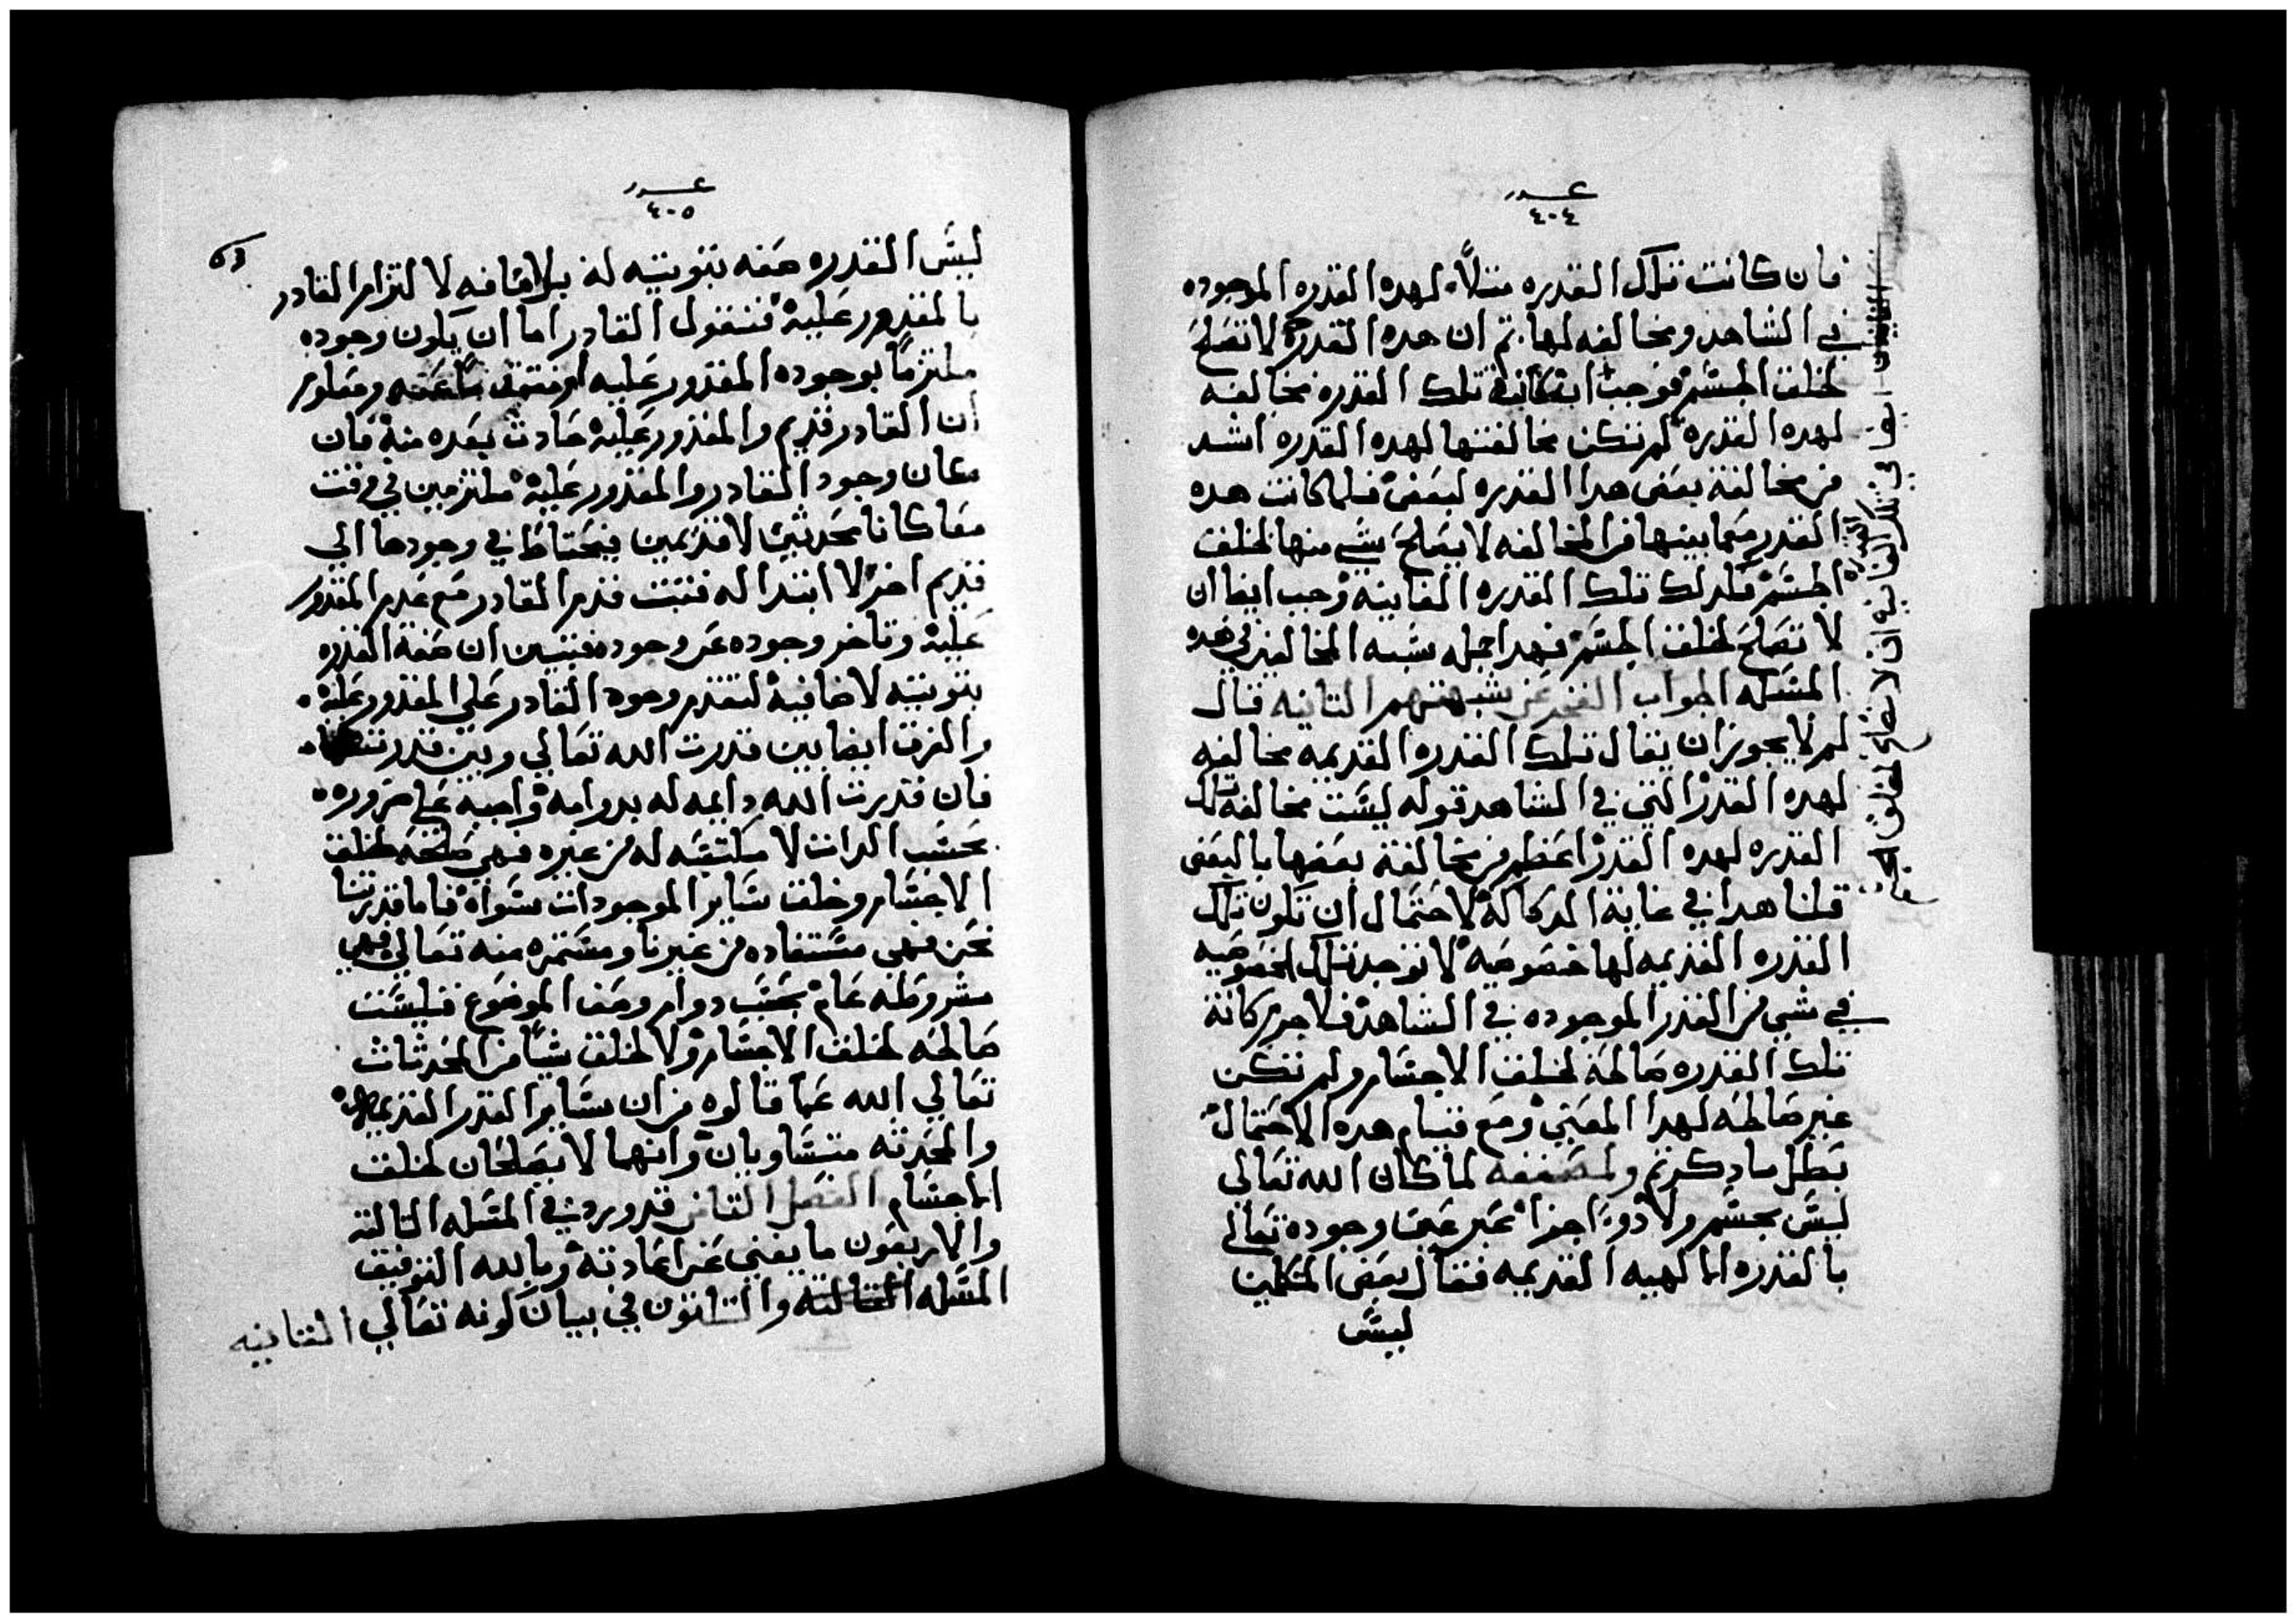 عدد
٤٠٤
فان كانت تلك القدره مثلاً لهده القدره الموجوده
في الشاهد ومخالفه لها. تم ان هده القدرة لا تصلح
لخلق الجسم فوجب ان كانت تلك القدره مخالفه
لهده القدره لم تكن مخالفتها لهده القدره اشد
من مخالفة بعض هدا القدره لبعض فلما كانت هده
القدر مما بينها من المخالفه لا يصلح شي منها لخلق
الجسم فلدلك تلك القدره الغايبه وجب ايضا ان
لا تصلح لخلق الجسم فهدا جمله شبه المخالفين في هده
المسله الجواب الفخر عن شبهتهم التانيه قال
لم لا يجوز ان يقال تلك القدره القديمه مخالفه
لهده القدر التي في الشاهد قوله ليست مخالفة تلك
القدره لهده القدر اعظم من مخالفة بعضها بالبعض
قلنا هدا في غاية الركاكة لاحتمال ان تكون تلك
القدره القديمه لها خصوصيه لا توجد تلك الخصوصيه
في شي من القدر الموجوده في الشاهد فلا جرم كانة
تلك القدره صالحة لخلق الاجسام ولم تكن
غير صالحه لهدا المعني ومع قيام هده الاحتمال
بطل ما دكرتم لما كان الله تعالي
ليس بجسم ولا دو اجزا غير وجوده تعالي
بالقدره الالهيه القديمه فقال بعض المتكلمين
ليس
ايضا في تلك القدره الغايبه ان لا تصلح لخلق الجسم
عدد
٤٠٥
ليس القدره صفه تبوتيه له بل اضافه لالتزام القادر
بالمقدور عليه فنقول القادر اما ان يكون وجوده
ملتزماً بوجوده المقدور عليه ومعلوم
ان القادر قديم والمقدور عليه حادث بعده منه فان
كان وجود القادر والمقدور عليه ملتزمين في وقت
معا كانا محدثين لا قديمين فيحتاطا في وجودها الي
قديم اخر لا ابتدا له فتبت قدم القادر مع عدم المقدور
عليه وتاخر وجوده عن وجوده فتبين ان صفة القدره
تبوتيه لا ضافية لتقدم وجود القادر علي المقدور عليه
والفرق ايضا بين قدرت الله تعالي وبين قدرتنا
فان قدرت الله دايمه له بدوامه واجبه ضروره
بحسب الدات لا مكتسبه له من غيره فهي صالحه لخلق
الاجسام وخلق ساير الموجودات سواه فاما قدرتنا
نحن فهي مستفاده من غيرنا ومستمره منه تعالي فهي
مشروطه عام بحسب دوام وصف الموضوع فليست
صالحه لخلق الاجسام ولا لخلق شياً من المحدثات
تعالي الله عما قالوه من ان ساير القدر القديمه
والمحدته متساويان وانهما لا يصلحان لخلق
الاجسام الفصل التامن قد ورد في المسله التالتة
والاربعون ما يغني عن اعادته وبالله التوفيق
المسله التالته والتلاتون في بيان كونه تعالي التانيه